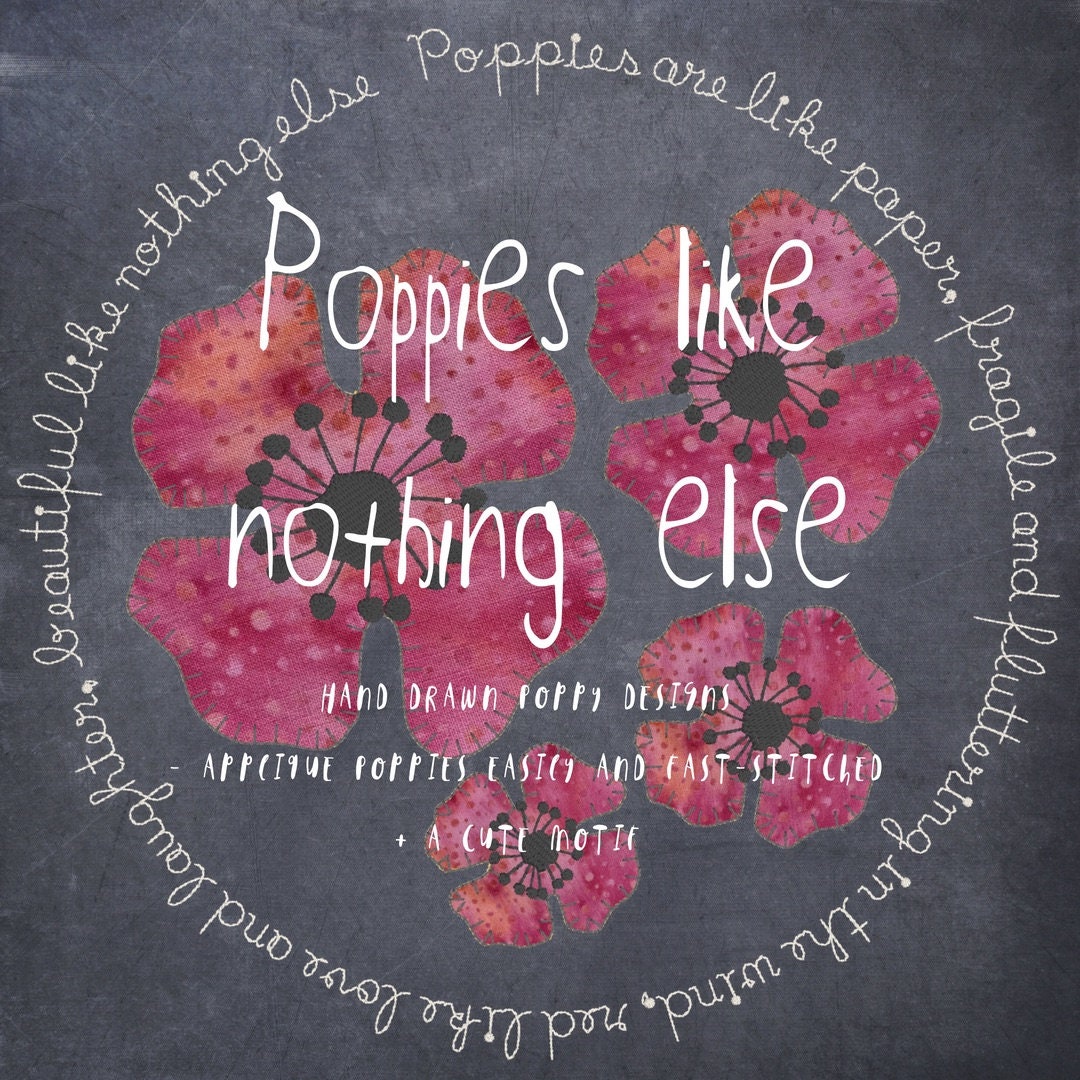 Poppies are like paper, fragile and fluttering in the wind, red like love and laughter, beautiful like nothing else
Poppies like
nothing else
HAND DRAWN POPPY DESIGNS
- APPLIQUE POPPIES EASILY AND FAST-STITCHED
+ A CUTE MOTIF